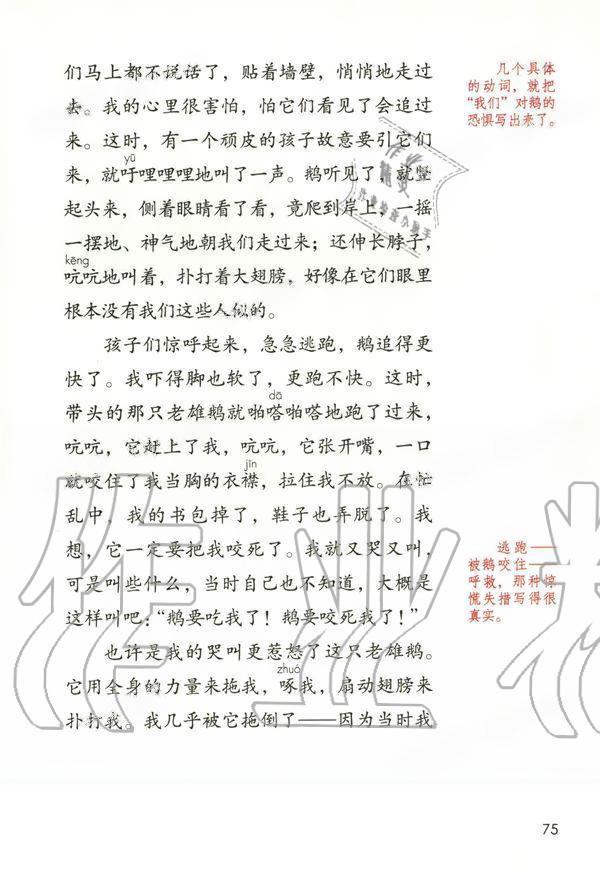 们马上都不说话了，贴着墙壁，悄悄地走过
去。我的心里很害怕，怕它们看见了会追过
来。这时，有一个顽皮的孩子故意要引它们
yū
来，就吁哩哩哩地叫了一声。鹅听见了，就竖
起头来，侧着眼睛看了看，竟爬到岸上，一摇
一摆地、神气地朝我们走过来；还伸长脖子，
kēng
吭吭地叫着，扑打着大翅膀，好像在它们眼里
根本没有我们这些人似的。
孩子们惊呼起来，急急逃跑，鹅追得更
快了。我吓得脚也软了，更跑不快。这时，
dā
带头的那只老雄鹅就啪嗒啪嗒地跑了过来，
吭吭，它赶上了我，吭吭，它张开嘴，一口
jīn
就咬住了我当胸的衣襟，拉住我不放。在忙
乱中，我的书包掉了，鞋子也弄脱了。我
想，它一定要把我咬死了。我就又哭又叫，
可是叫些什么，当时自己也不知道，大概是
这样叫吧：“鹅要吃我了！鹅要咬死我了！”
也许是我的哭叫更惹怒了这只老雄鹅。
zhuó
它用全身的力量来拖我，啄我，扇动翅膀来
扑打我。我几乎被它拖倒了——因为当时我
几个具体
的动词，就把
“我们”对鹅的
恐惧写出来了。
逃跑——
被鹅咬住——
呼救，那种惊
慌失措写得很
真实。
75
作业精灵
作业检查小助手
作业精